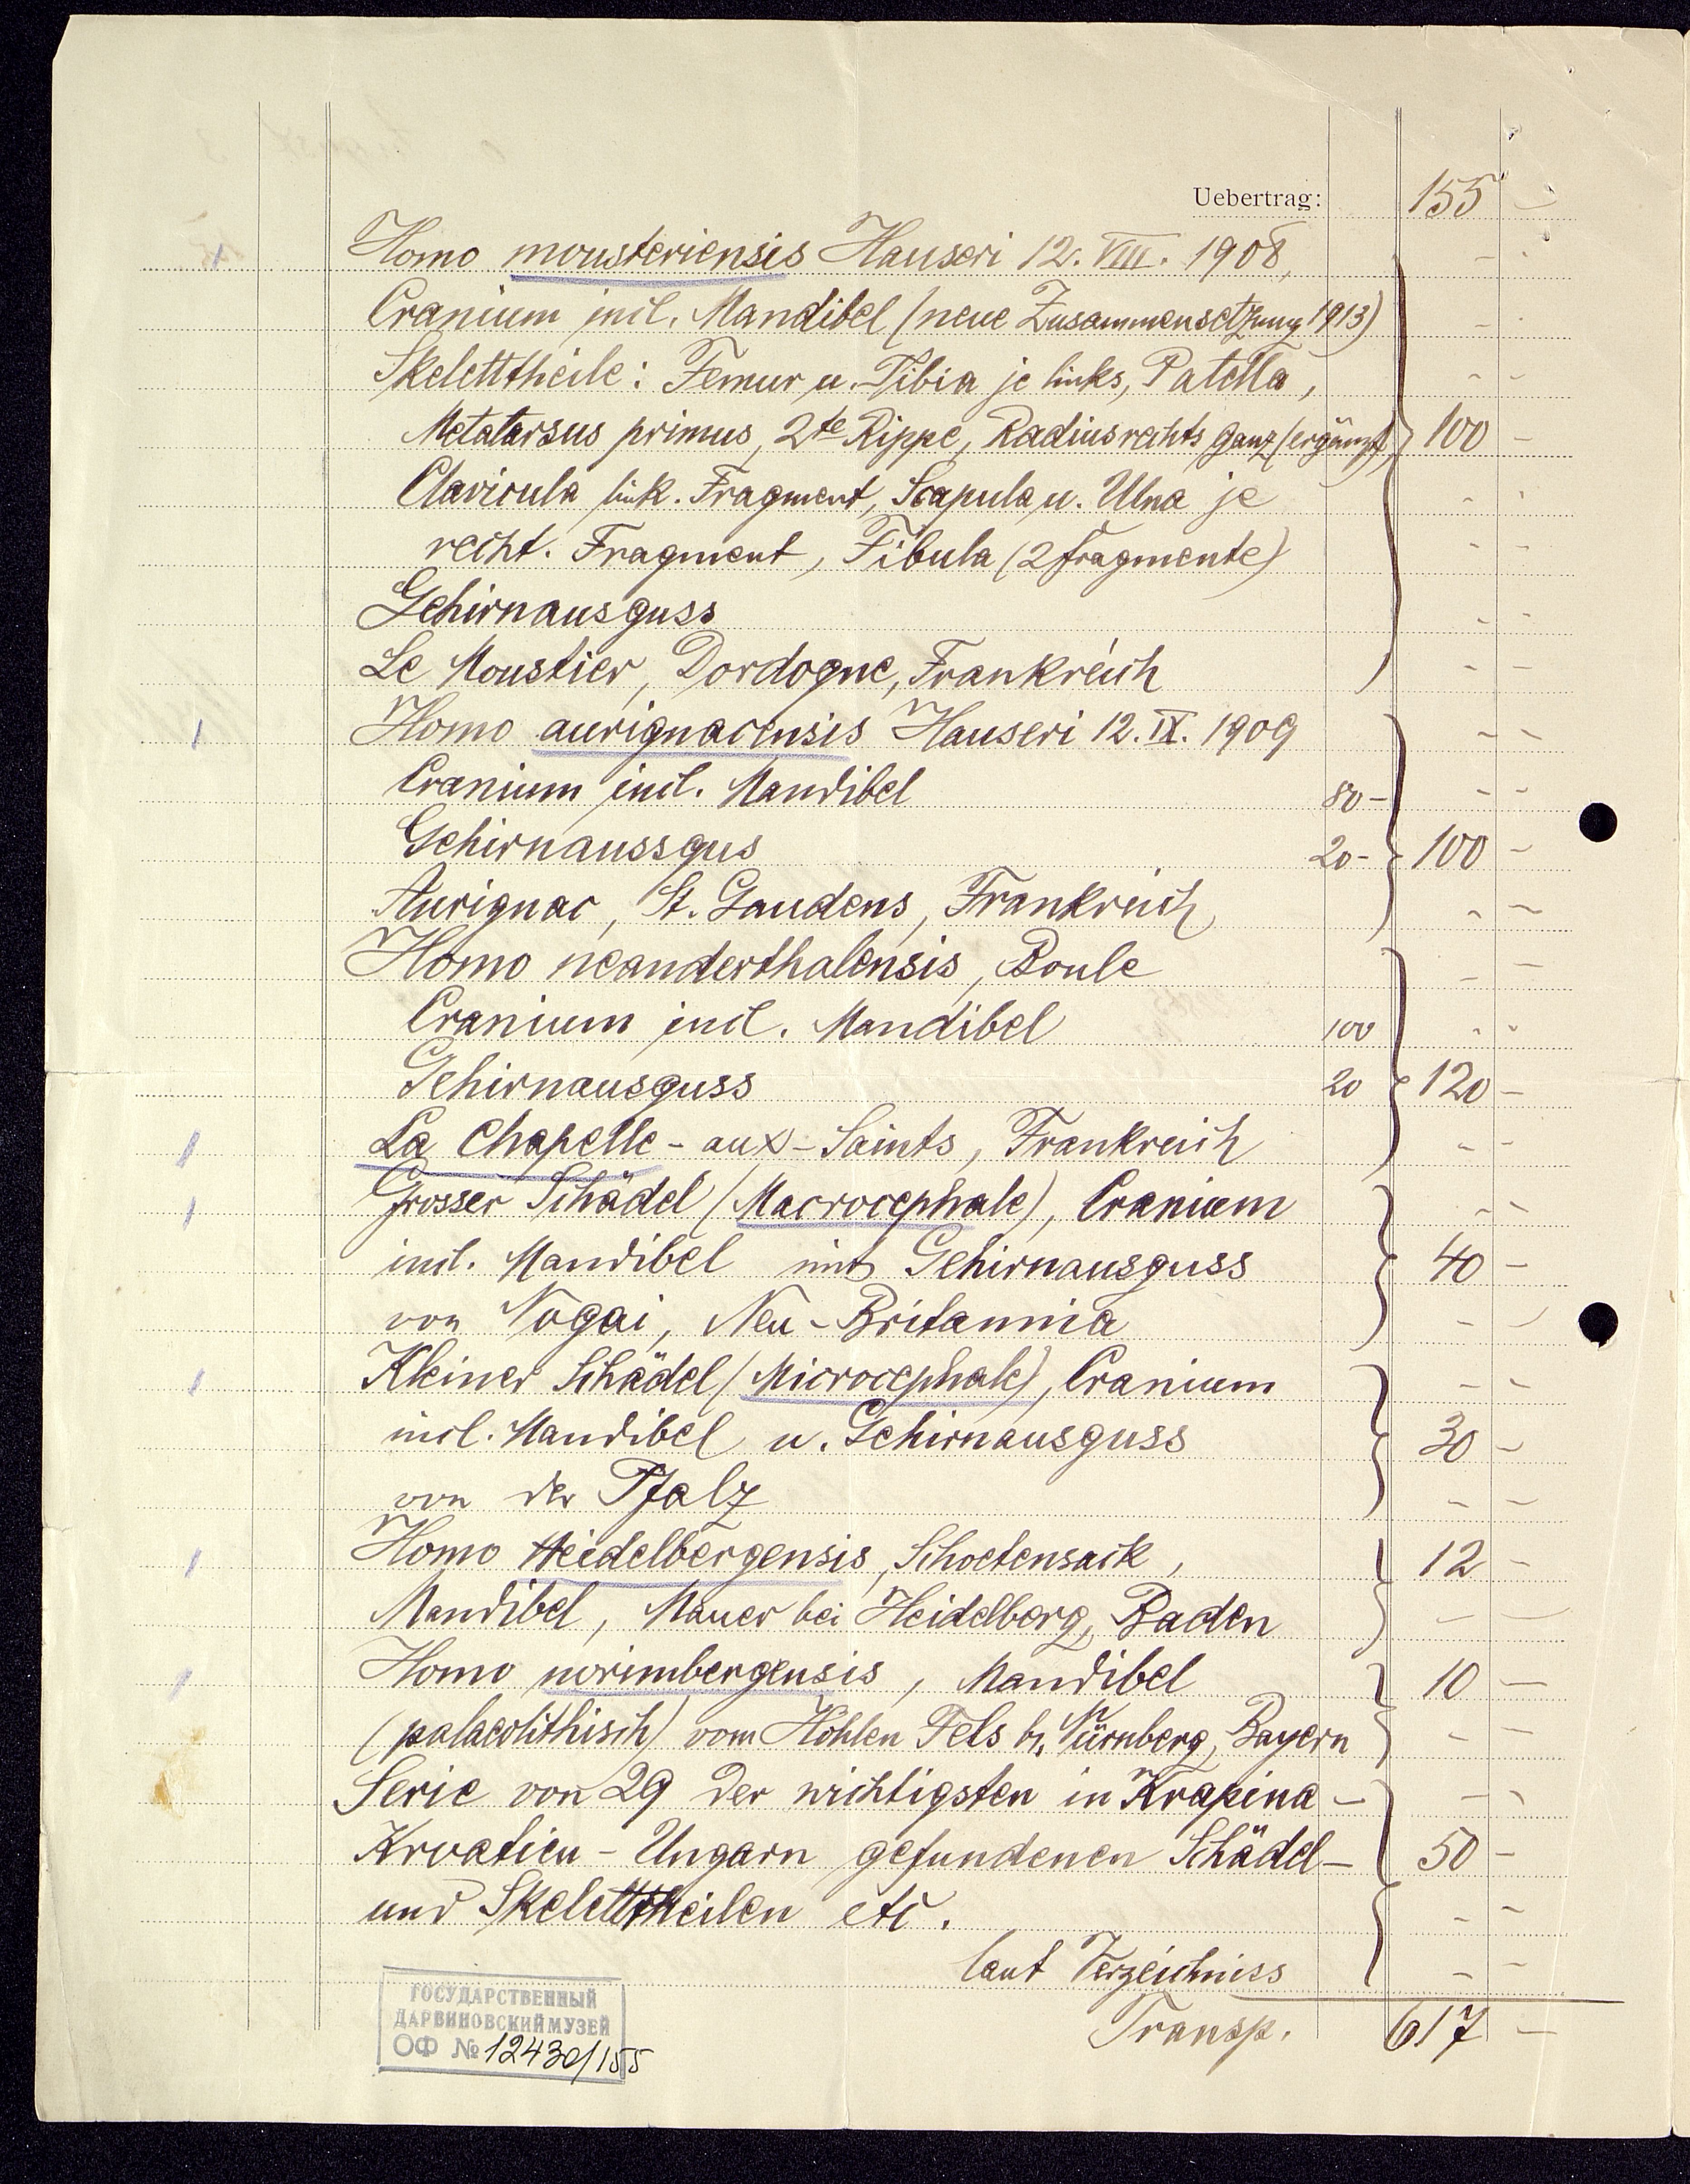 Uebertrag: 155 –
Homo mousteriensis Hauseri 12. VIII. 1908,
Cranium incl. Mandibel (neue Zusammensetzung 1913)
Skelettheile: Femur u. Tibia je links, Patella,
Metatarsus primus, 2te Rippe, Radius rechts ganz (ergänzt), 100 –
Clavicula link. Fragment, Scapula u. Ulna je
recht. Fragment, Fibula (2 fragmente)
Gehirnausguss
Le Moustier, Dordogne, Frankreich
Homo aurignacensis Hauseri 12. IX. 1909
Cranium incl. Mandibel 80 –
Gehirnaussgus 20 – 100 –
Aurignac, St. Gaudens, Frankreich
Homo neanderthalensis, Boule
Cranium incl. Mandibel 100
Gehirnausguss 20 120 –
La Chapelle-aux-Saints, Frankreich
Grosser Schädel (Macrocephale), Cranium
incl. Mandibel mit Gehirnausguss 40 –
von Nogai, Neu-Britannia
Kleiner Schädel (Microcephale), Cranium
incl. Mandibel u. Gehirnausguss 30 –
von der Pfalz
Homo Heidelbergensis, Schoetensack, 12 –
Mandibel, Mauer bei Heidelberg, Baden
Homo norimbergensis, Mandibel 10 –
(palaeolithisch) vom Hohlen Fels b. Nürnberg, Bayern
Serie von 29 der wichtigsten in Krapina –
Kroatien – Ungarn gefundenen Schädel – 50 –
und Skelettheilen etc.
laut Verzeichniss
Transp. 617 –
ГОСУДАРСТВЕННЫЙ
ДАРВИНОВСКИЙ МУЗЕЙ
ОФ № 12430/155